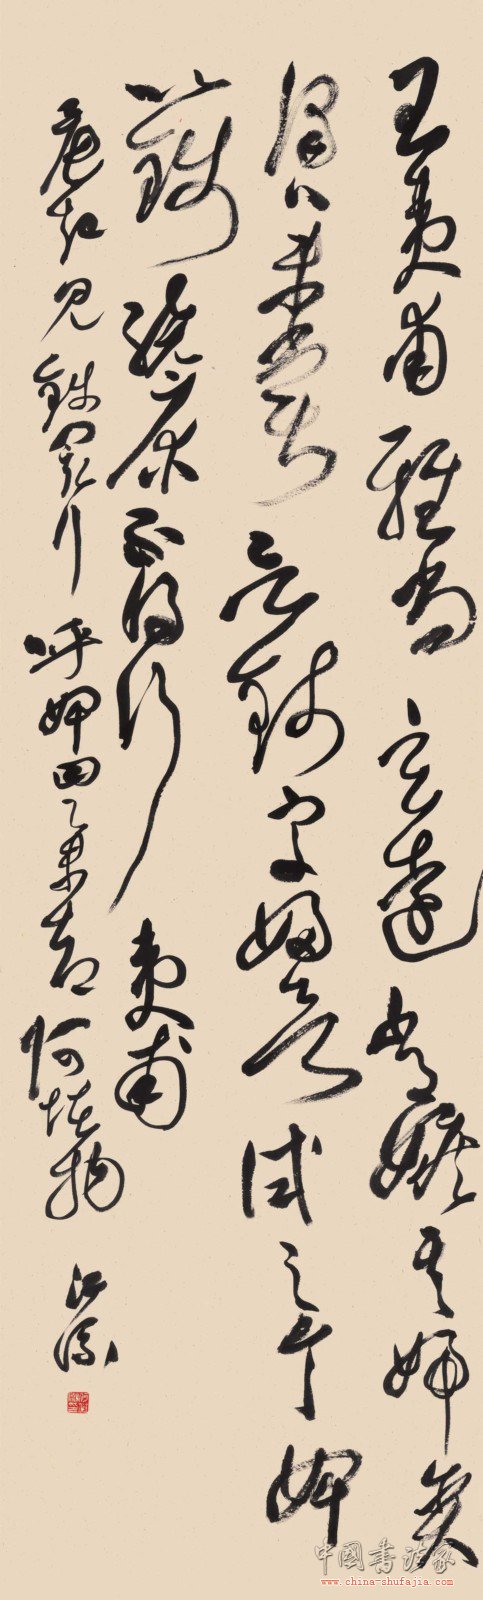 王夷甫雅尚玄遠常嫉其婦貪
濁口未嘗言錢字婦欲試之令婢
以錢繞床不得行夷甫
晨起見錢閡行呼婢曰舉却阿堵物
中國書法家
www.china-shufajia.com